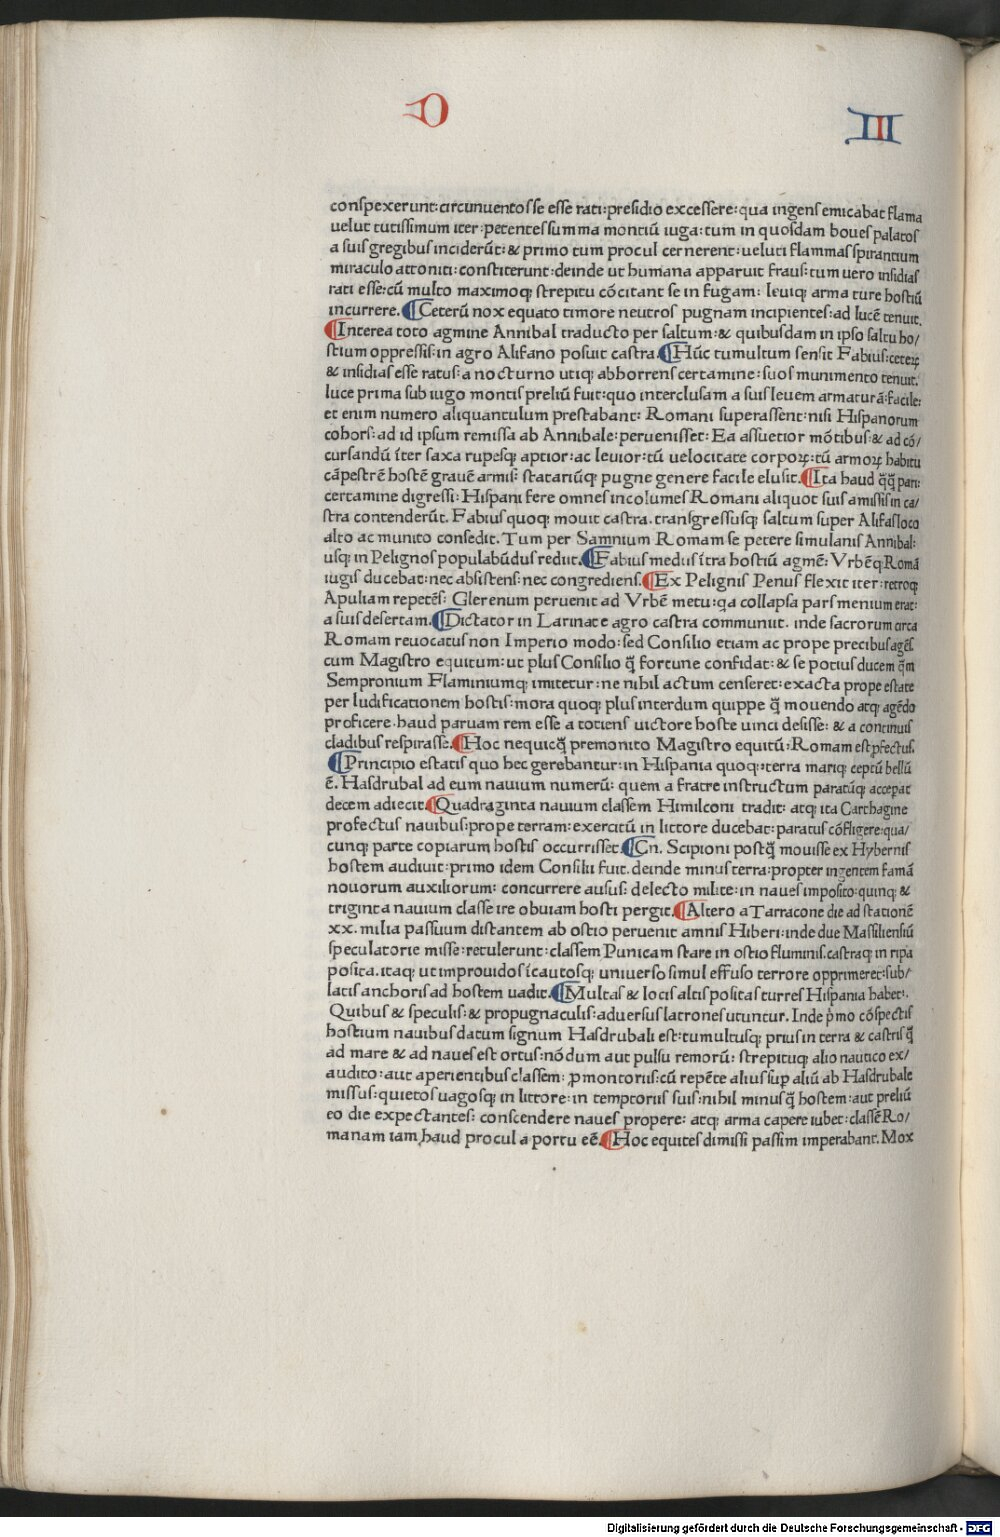 D III
conspexerunt: circunuentos se esse rati: presidio excessere: qua ingens emicabat flama
uelut tutissimum iter: petentes summa montiũ iuga: tum in quosdam boues palatos
a suis gregibus inciderũt: & primo tum procul cernerent: ueluti flammas spirantium
miraculo attoniti: constiterunt: deinde ut humana apparuit fraus: tum uero insidias
rati esse: cũ multo maximoq; strepitu cõcitant se in fugam: leuiq; arma ture hostiũ
incurrere. ¶Ceterũ nox equato timore neutros pugnam incipientes: ad lucẽ tenuit.
¶Interea toto agmine Annibal traducto per saltum: & quibusdam in ipso saltu ho/
stium oppressis: in agro Alifano posuit castra. ¶Hũc tumultum sensit Fabius: ceterꝝ
& insidias esse ratus: a nocturno utiq; abhorrens certamine: suos munimento tenuit.
luce prima sub iugo montis preliũ fuit: quo interclusam a suis leuem armaturã: facile:
et enim numero aliquantulum prestabant: Romani superassent: nisi Hispanorum
cohors: ad id ipsum remissa ab Annibale: peruenisset: Ea assuetior mõtibus: & ad cõ/
cursandũ ĩter saxa rupesq; aptior: ac leuior: tũ uelocitate corpoꝝ: tũ armoꝝ habitu
cãpestrẽ hostẽ grauẽ armis: statariũq; pugne genere facile elusit. ¶Ita haud q̃q̃ pari:
certamine digressi: Hispani fere omnes incolumes Romani aliquot suis amissis in ca/
stra contenderũt. Fabius quoq; mouit castra. transgressusq; saltum super Alifas loco
alto ac munito consedit. Tum per Samnium Romam se petere simulanis Annibal:
usq; in Pelignos populabũdus rediit. ¶Fabius medius ĩtra hostiũ agmẽ: Vrbẽq; Romã
iugis ducebat: nec absistens: nec congrediens. ¶Ex Pelignis Penus flexit iter: retroq;
Apuliam repetẽs: Glerenum peruenit ad Vrbẽ metu: qa collapsa pars menium erat:
a suis desertam. ¶Dictator in Larinate agro castra communiit. inde sacrorum circa
Romam reuocatus non Imperio modo: sed Consilio etiam ac prope precibus agẽs.
cum Magistro equitum: ut plus Consilio q̃ fortune confidat: & se potius ducem q̃m
Sempronium Flaminiumq; imitetur: ne nihil actum censeret: exacta prope estate
per ludificationem hostis: mora quoq; plus interdum quippe q̃ mouendo atq; agẽdo
proficere. haud paruam rem esse a totiens uictore hoste uinci desisse: & a continuis
cladibus respirasse. ¶Hoc nequicq̃ premonito Magistro equitũ: Romam est ꝓfectus.
¶Principio estatis quo hec gerebantur: in Hispania quoq; terra mariq; ceptũ bellũ
ẽ. Hasdrubal ad eum nauium numerũ: quem a fratre instructum paratũq; accepat
decem adiecit. ¶Quadraginta nauium classem Himilconi tradit: atq; ita Carthagine
profectus nauibus: prope terram: exercitũ in littore ducebat: paratus cõfligere: qua/
cunq; parte copiarum hostis occurrisset. ¶Cn. Scipioni postq̃ mouisse ex Hybernis
hostem audiuit: primo idem Consilii fuit. deinde minus terra: propter ingentem famã
nouorum auxiliorum: concurrere ausus: delecto milite: in naues imposito: quinq; &
triginta nauium classe ire obuiam hosti pergit. ¶Altero a Tarracone die ad stationẽ
xx. milia passuum distantem ab ostio peruenit amnis Hiberi: inde due Massiliensiũ
speculatorie misse: retulerunt: classem Punicam stare in ostio fluminis. castraq; in ripa
posita. itaq; ut improuidos ĩcautosq; uniuerso simul effuso terrore opprimeret: sub/
latis anchoris ad hostem uadit. ¶Multas & locis altis positas turres Hispania habet:.
Quibus & speculis: & propugnaculis: aduersus latrones utuntur. Inde pi̇mo cõspectis
hostium nauibus datum signum Hasdrubali est: tumultusq; prius in terra & castris q̃
ad mare & ad naues est ortus: nõdum aut pulsu remorũ: strepituq; alio nautico ex/
audito: aut aperientibus classem: ꝓmontoriis: cũ repẽte alius suꝑ aliũ ab Hasdrubale
missus: quietos uagosq; in littore: in temptoriis suis: nihil minus q̃ hostem: aut preliũ
eo die expectantes: conscendere naues propere: atq; arma capere iubet: classẽ Ro/
manam iam haud procul a portu eẽ. ¶Hoc equites dimissi passim imperabant. Mox
Digitalisierung gefördert durch die Deutsche Forschungsgemeinschaft - DFG